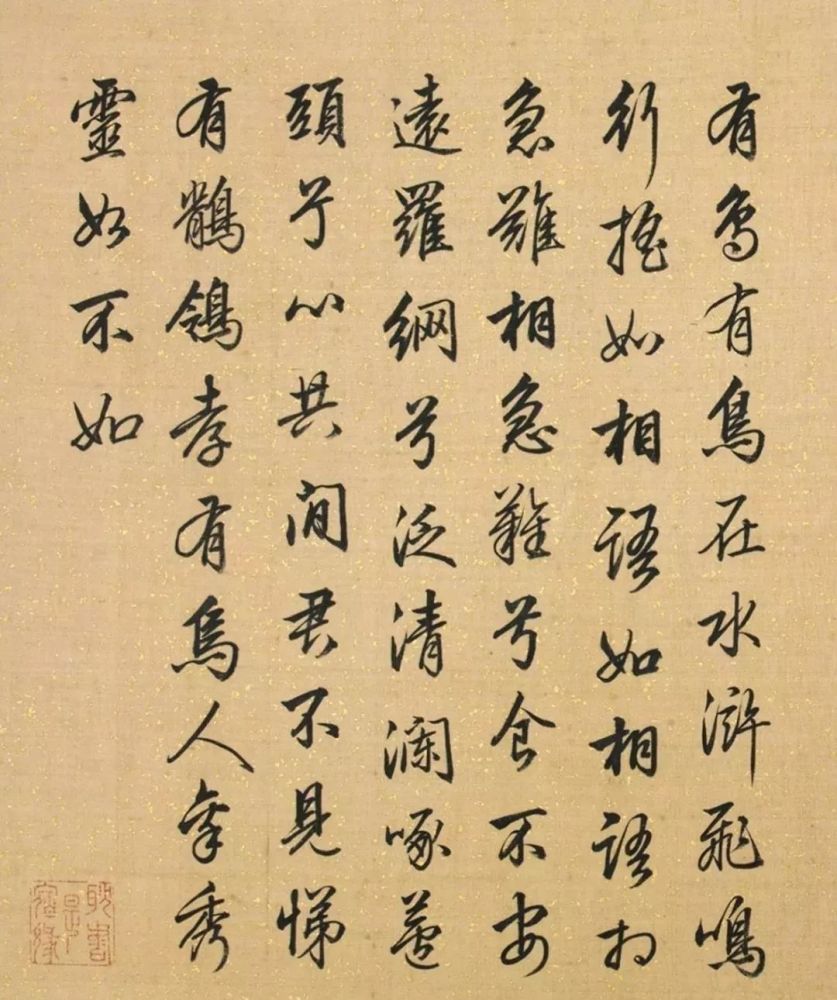 有鳥有鳥在水滸飛鳴
行搖如相語如相語於
急難相急難兮食不安
遠羅綱兮泛清瀾啄蘆
頭兮心共閒君不見悌
有鶺鴒孝有烏人秀
靈如不如
耽書是宿緣